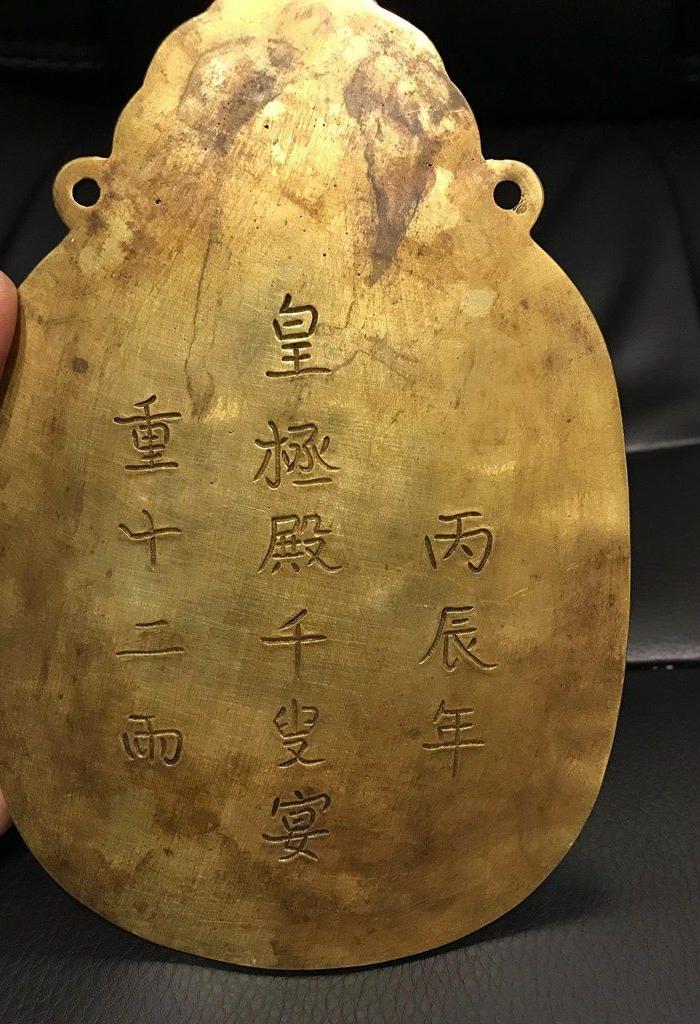 丙辰年
皇極殿千叟宴
重十二兩